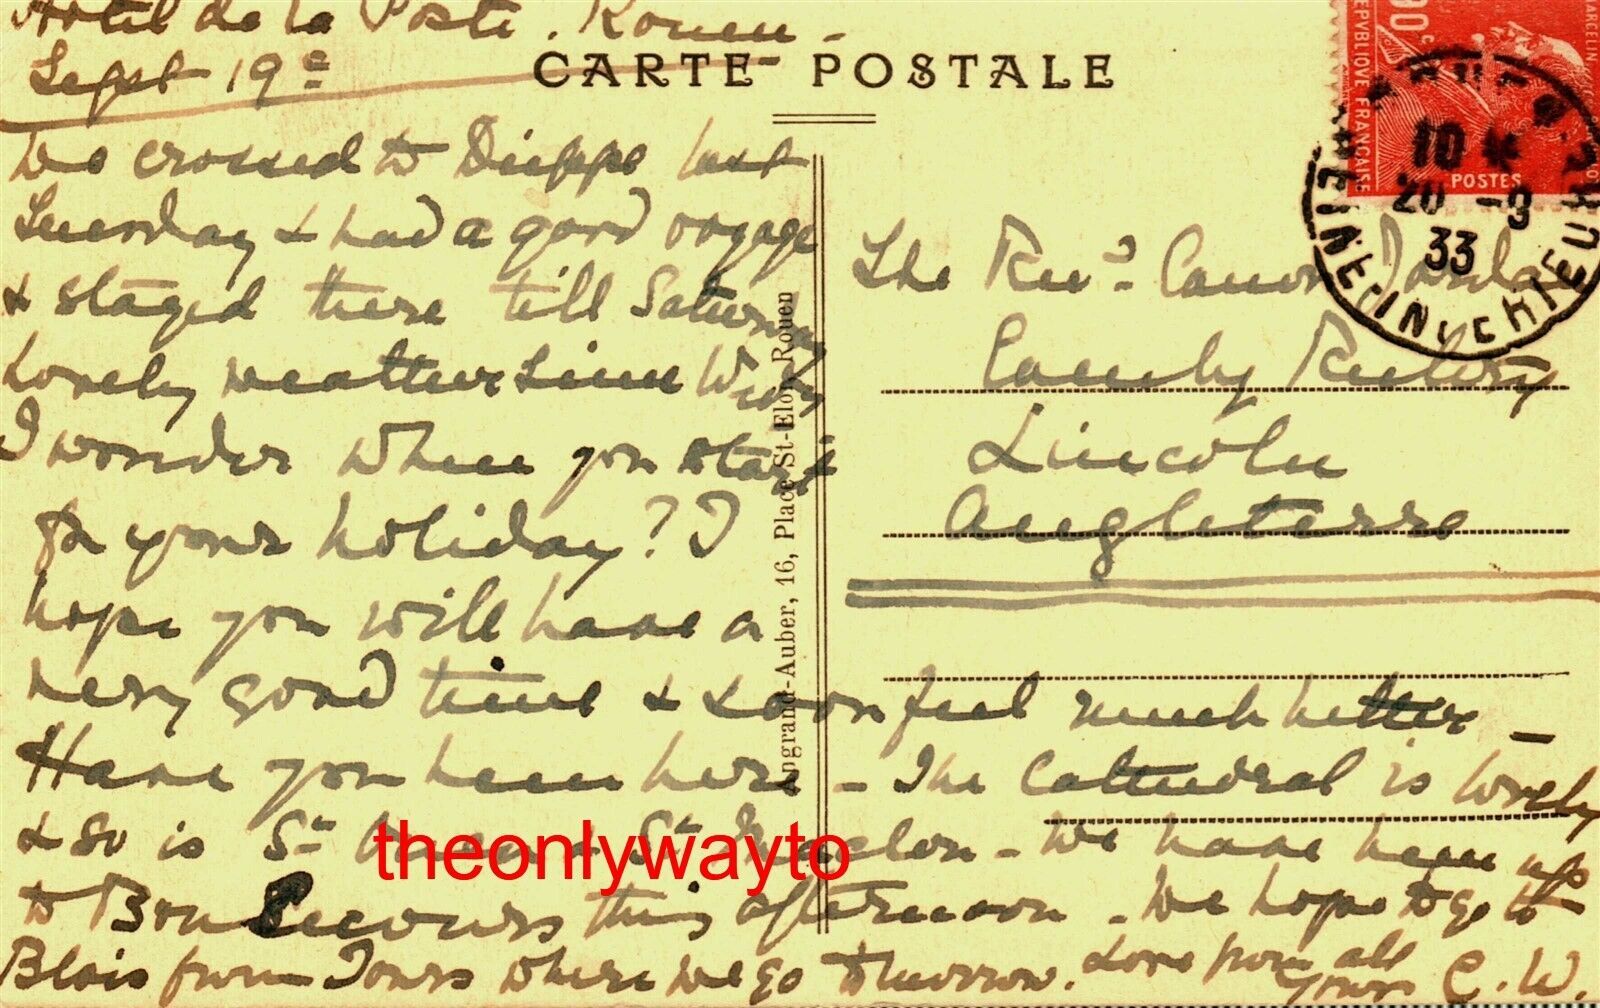 Hotel de la Poste. Rouen -
Sept 19e
CARTE POSTALE
We crossed to Dieppe last
Tuesday & had a good voyage
& stayed there till Saturday
Lovely weather since Wedy
I wonder when you start
for your holiday? I
hope you will have a
very good time & soon feel much better -
Have you been here - The Cathedral is lovely
& so is St & St Maclou - We have been up
to Bon Secours this afternoon - We hope to go to
Blois from Tours where we go tomorrow. Love from all
yours C. W.
The Revd. Canon
Rectory
Lincoln
Angleterre
Angrand-Auber, 16, Place St-Eloi, Rouen
REPUBLIQUE FRANCAISE
90c
POSTES
10
20 -9
33
SEINE-INF
theonlywayto